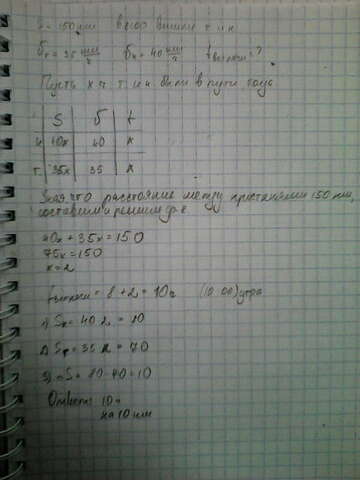 S = 150 км
υт = 35 км/ч υк = 40 км/ч tвстречи = ?
Пусть x ч т. и к. были в пути, тогда
S υ t
к. 40x 40 x
т. 35x 35 x
Зная, что расстояние между пристанями 150 км,
составим и решим ур-е
40x + 35x = 150
75x = 150
x = 2
tвстречи = 8 + 2 = 10 ч (10:00) утра
1) Sк = 40·2 = 80
2) Sт = 35·2 = 70
3) S = 80 - 70 = 10
Ответ: 10 ч
на 10 км